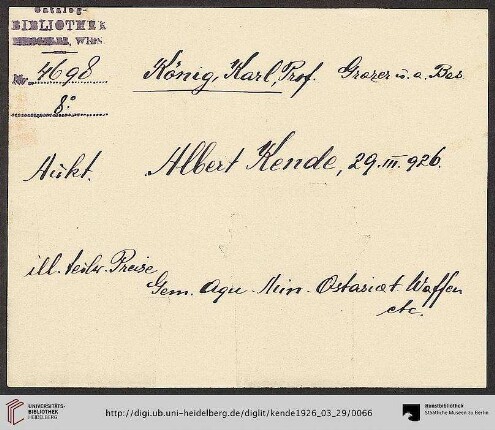 Catalog-
BIBLIOTHEK
WIEN.
Nr. 4698
8°
König, Karl, Prof. Grazer u. a. Bes.
Aukt. Albert Kende, 29. III. 926.
ill. teilw. Preise
Gem. Aqu. Min. Ostasiat. Waffen
etc.
UNIVERSITÄTS-
BIBLIOTHEK
HEIDELBERG
http://digi.ub.uni-heidelberg.de/diglit/kende1926_03_29/0066
Kunstbibliothek
Staatliche Museen zu Berlin